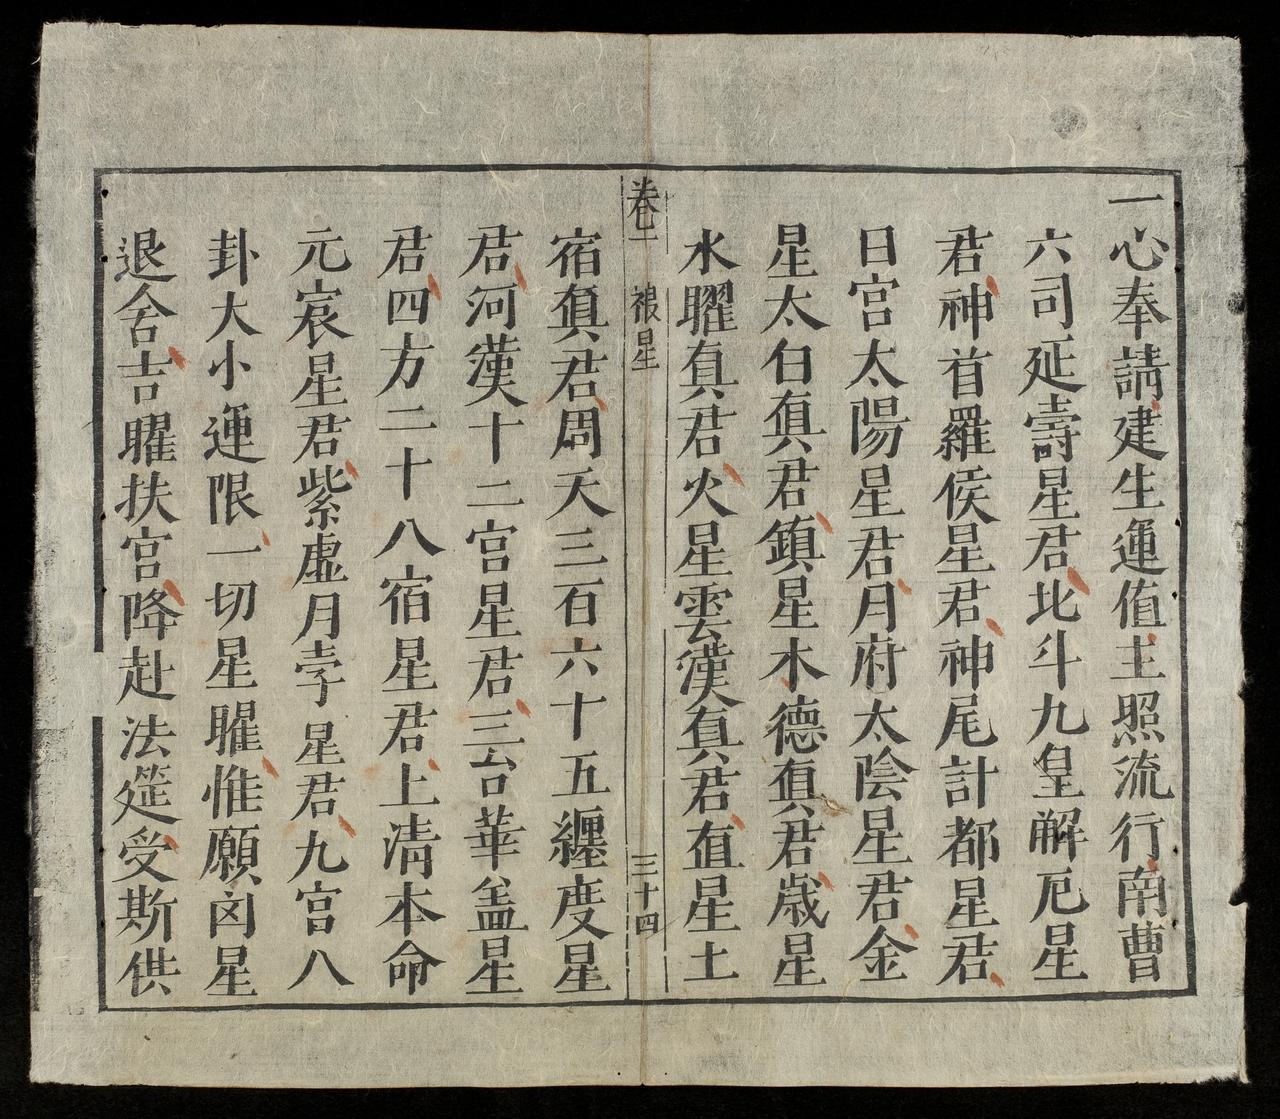 一心奉請建生運值主照流行南曹
六司延壽星君北斗九皇解厄星
君神首羅侯星君神尾計都星君
日宮太陽星君月府太陰星君金
星太白真君鎮星木德真君歲星
水曜真君火星雲漢真君值星土
卷一 禳星 三十四
宿真君周天三百六十五纏度星
君河漢十二宮星君三台華盖星
君四方二十八宿星君上清本命
元宸星君紫虛月孛星君九宮八
卦大小運限一切星曜惟願凶星
退舍吉曜扶宮降赴法筵受斯供